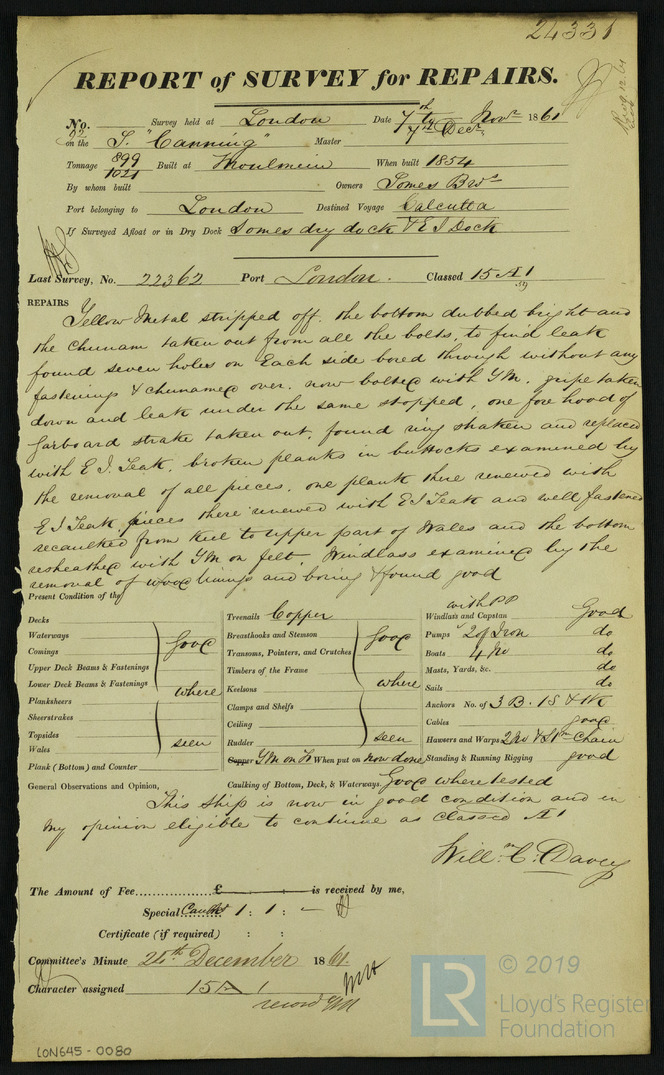 24331
REPORT of SURVEY for REPAIRS.
No. 92 Survey held at London Date 7th to Novr 1861
7th Decr
on the S. "Canning" Master
Tonnage 899 Built at Moulmein When built 1854
1021
By whom built Owners Somes Bros
Port belonging to London Destined Voyage Calcutta
If Surveyed Afloat or in Dry Dock Somes dry dock & E I Dock
Last Survey, No. 22362 Port London. Classed 15 A 1
REPAIRS
Yellow Metal stripped off. the bottom dubbed bright and
the chunam taken out from all the bolts, to find leak
found seven holes on Each side bored through without any
fastenings & chunamed over. now bolted with YM. gripe taken
down and leak under the same stopped, one fore hood of
garboard strake taken out, found very shaken and replaced
with E I. Teak, broken planks in buttocks examined by
the removal of all pieces. one plank there renewed with
E I Teak pieces there renewed with E I Teak and well fastened
recaulked from keel to upper part of Wales and the bottom
resheathed with YM on felt, Windlass examined by the
removal of wood linings and boring & found good
Present Condition of the
Decks
Waterways
Comings
Upper Deck Beams & Fastenings
Lower Deck Beams & Fastenings
good
where
Planksheers
Sheerstrakes
Topsides
Wales
seen
Plank (Bottom) and Counter
Treenails Copper
Breasthooks and Stemson
Transoms, Pointers, and Crutches
Timbers of the Frame
Keelsons
Clamps and Shelfs
Ceiling
Rudder
good
where
seen
Copper YM on Ft When put on now done
Caulking of Bottom, Deck, & Waterways. Good where tested
with PP
Windlass and Capstan Good
Pumps 2 of Iron do
Boats 4 No do
Masts, Yards, &c. do
Sails do
Anchors No. of 3 B. 1 S & 1 K
Cables good
Hawsers and Warps 2 No & Chain
Standing & Running Rigging good
General Observations and Opinion,
This ship is now in good condition and in
my opinion eligible to continue as classed A1
Willm C. Davey
The Amount of Fee £ is received by me,
Special Caulkg 1 : 1 : —
Certificate (if required) : :
Committee's Minute 24th December 1861.
Character assigned 15 A 1
record YM
LON645-0080
LR
© 2019
Lloyd's Register
Foundation